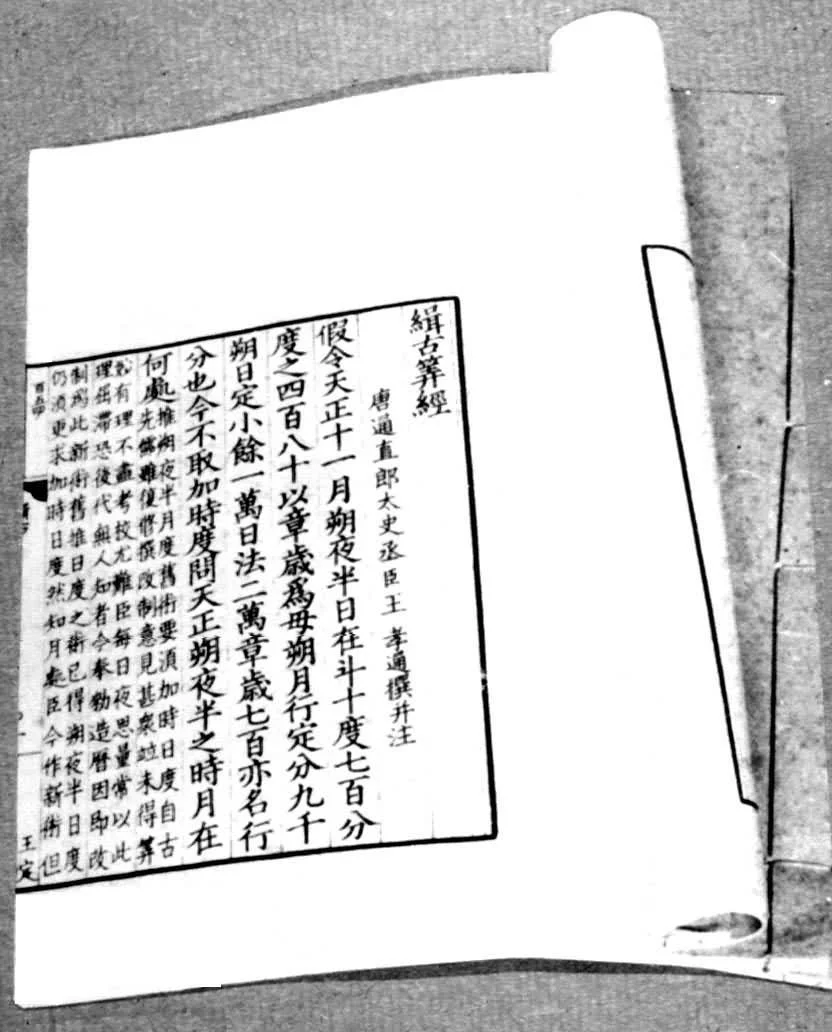 緝古筭經
唐通直郎太史丞臣王 孝通撰并注
假令天正十一月朔夜半日在斗十度七百分
度之四百八十以章歲爲母朔月行定分九千
朔日定小餘一萬日法二萬章歲七百亦名行
分也今不取加時度問天正朔夜半之時月在
何處
推朔夜半月度舊術要須加時日度自古
先儒雖復修撰改制意見甚衆竝未得筭
妙有理不盡考校尤難臣每日夜思量常以此
理屈滯恐後代無人知者今奉勑造曆因即改
制爲此新術舊推日度之術已得朔夜半日度
仍須更求加時日度然知月處臣今作新術但
王定